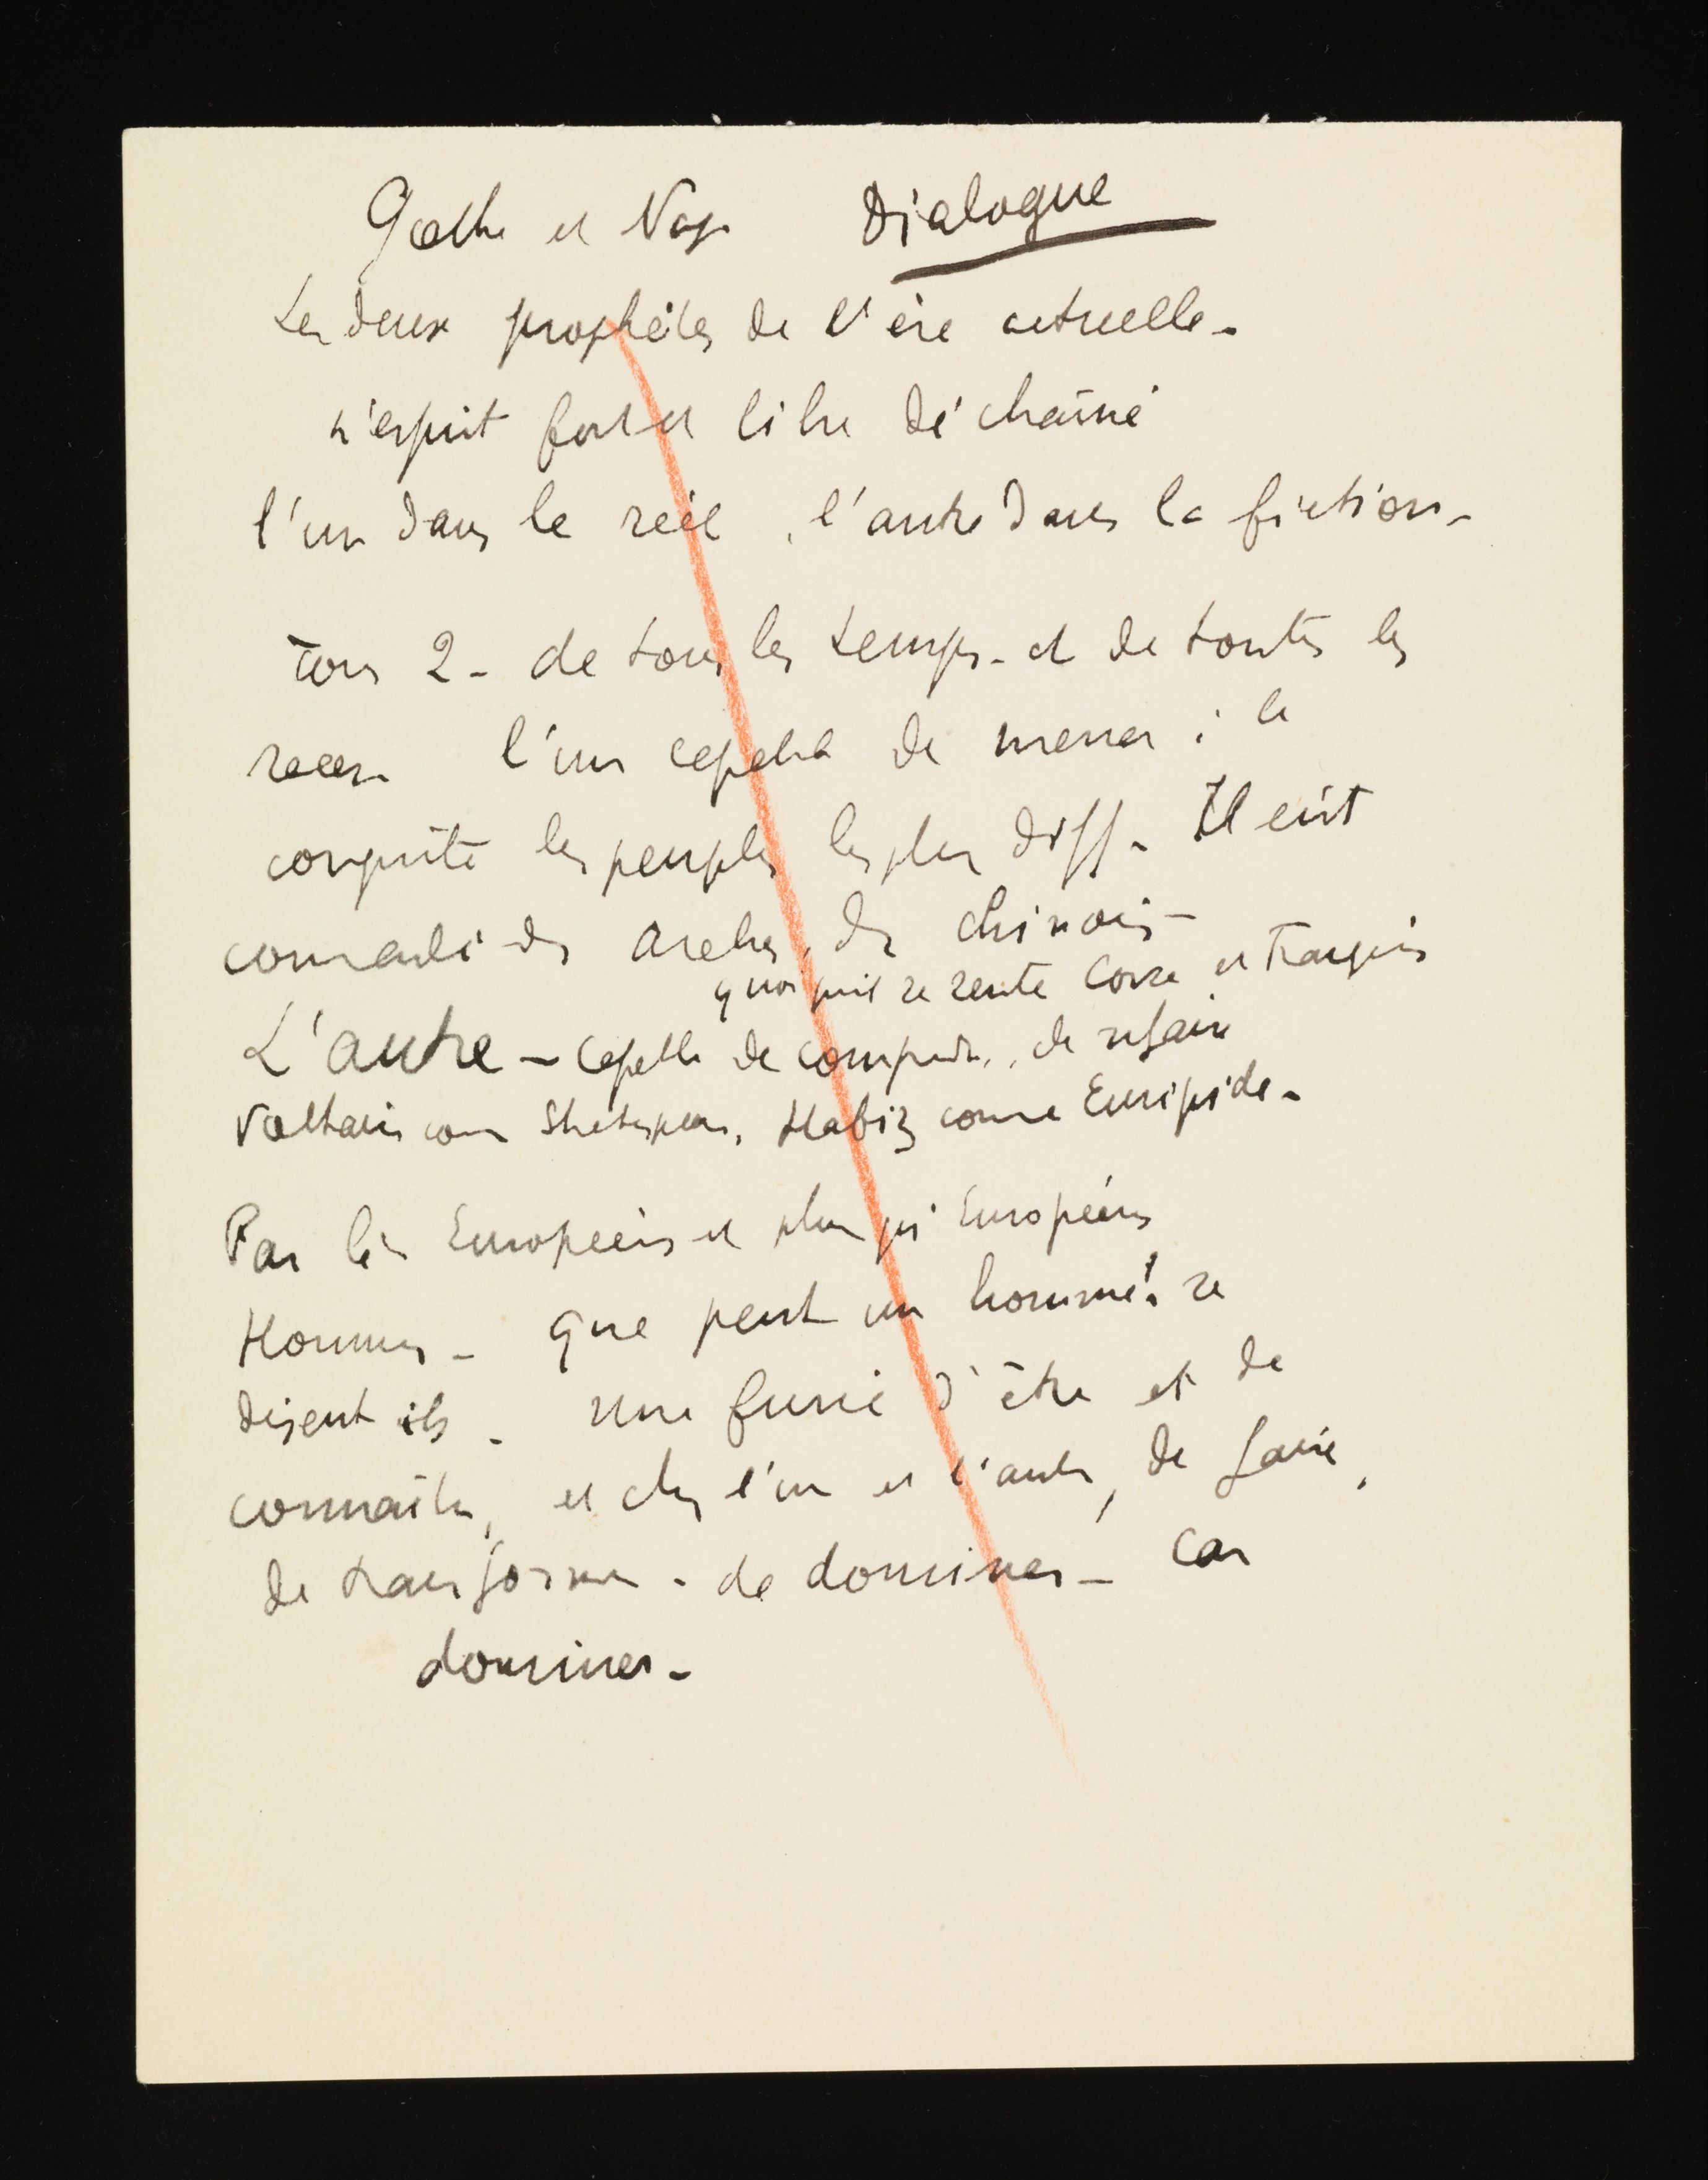 Gœthe et Nap. Dialogue
Les deux prophètes de l'ère actuelle -
L'esprit fort et libre déchaîné
l'un dans le réel, l'autre dans la fiction -
Tous 2 - de tous les temps - et de toutes les
races - l'un capable de mener à la
conquête les peuples les plus diff - Il eût
commandé des Arabes, des Chinois -
quoiqu'il se sente Corse et Français
L'autre - capable de comprendre, de refaire
Voltaire comme Shakespeare, Hafiz comme Euripide -
Par là Européens et plus qu'Européens
Hommes - Que peut un homme ? se
disent ils - Une furie d'être et de
connaître, et chez l'un et l'autre, de faire,
de transformer - de dominer - Car
dominer -